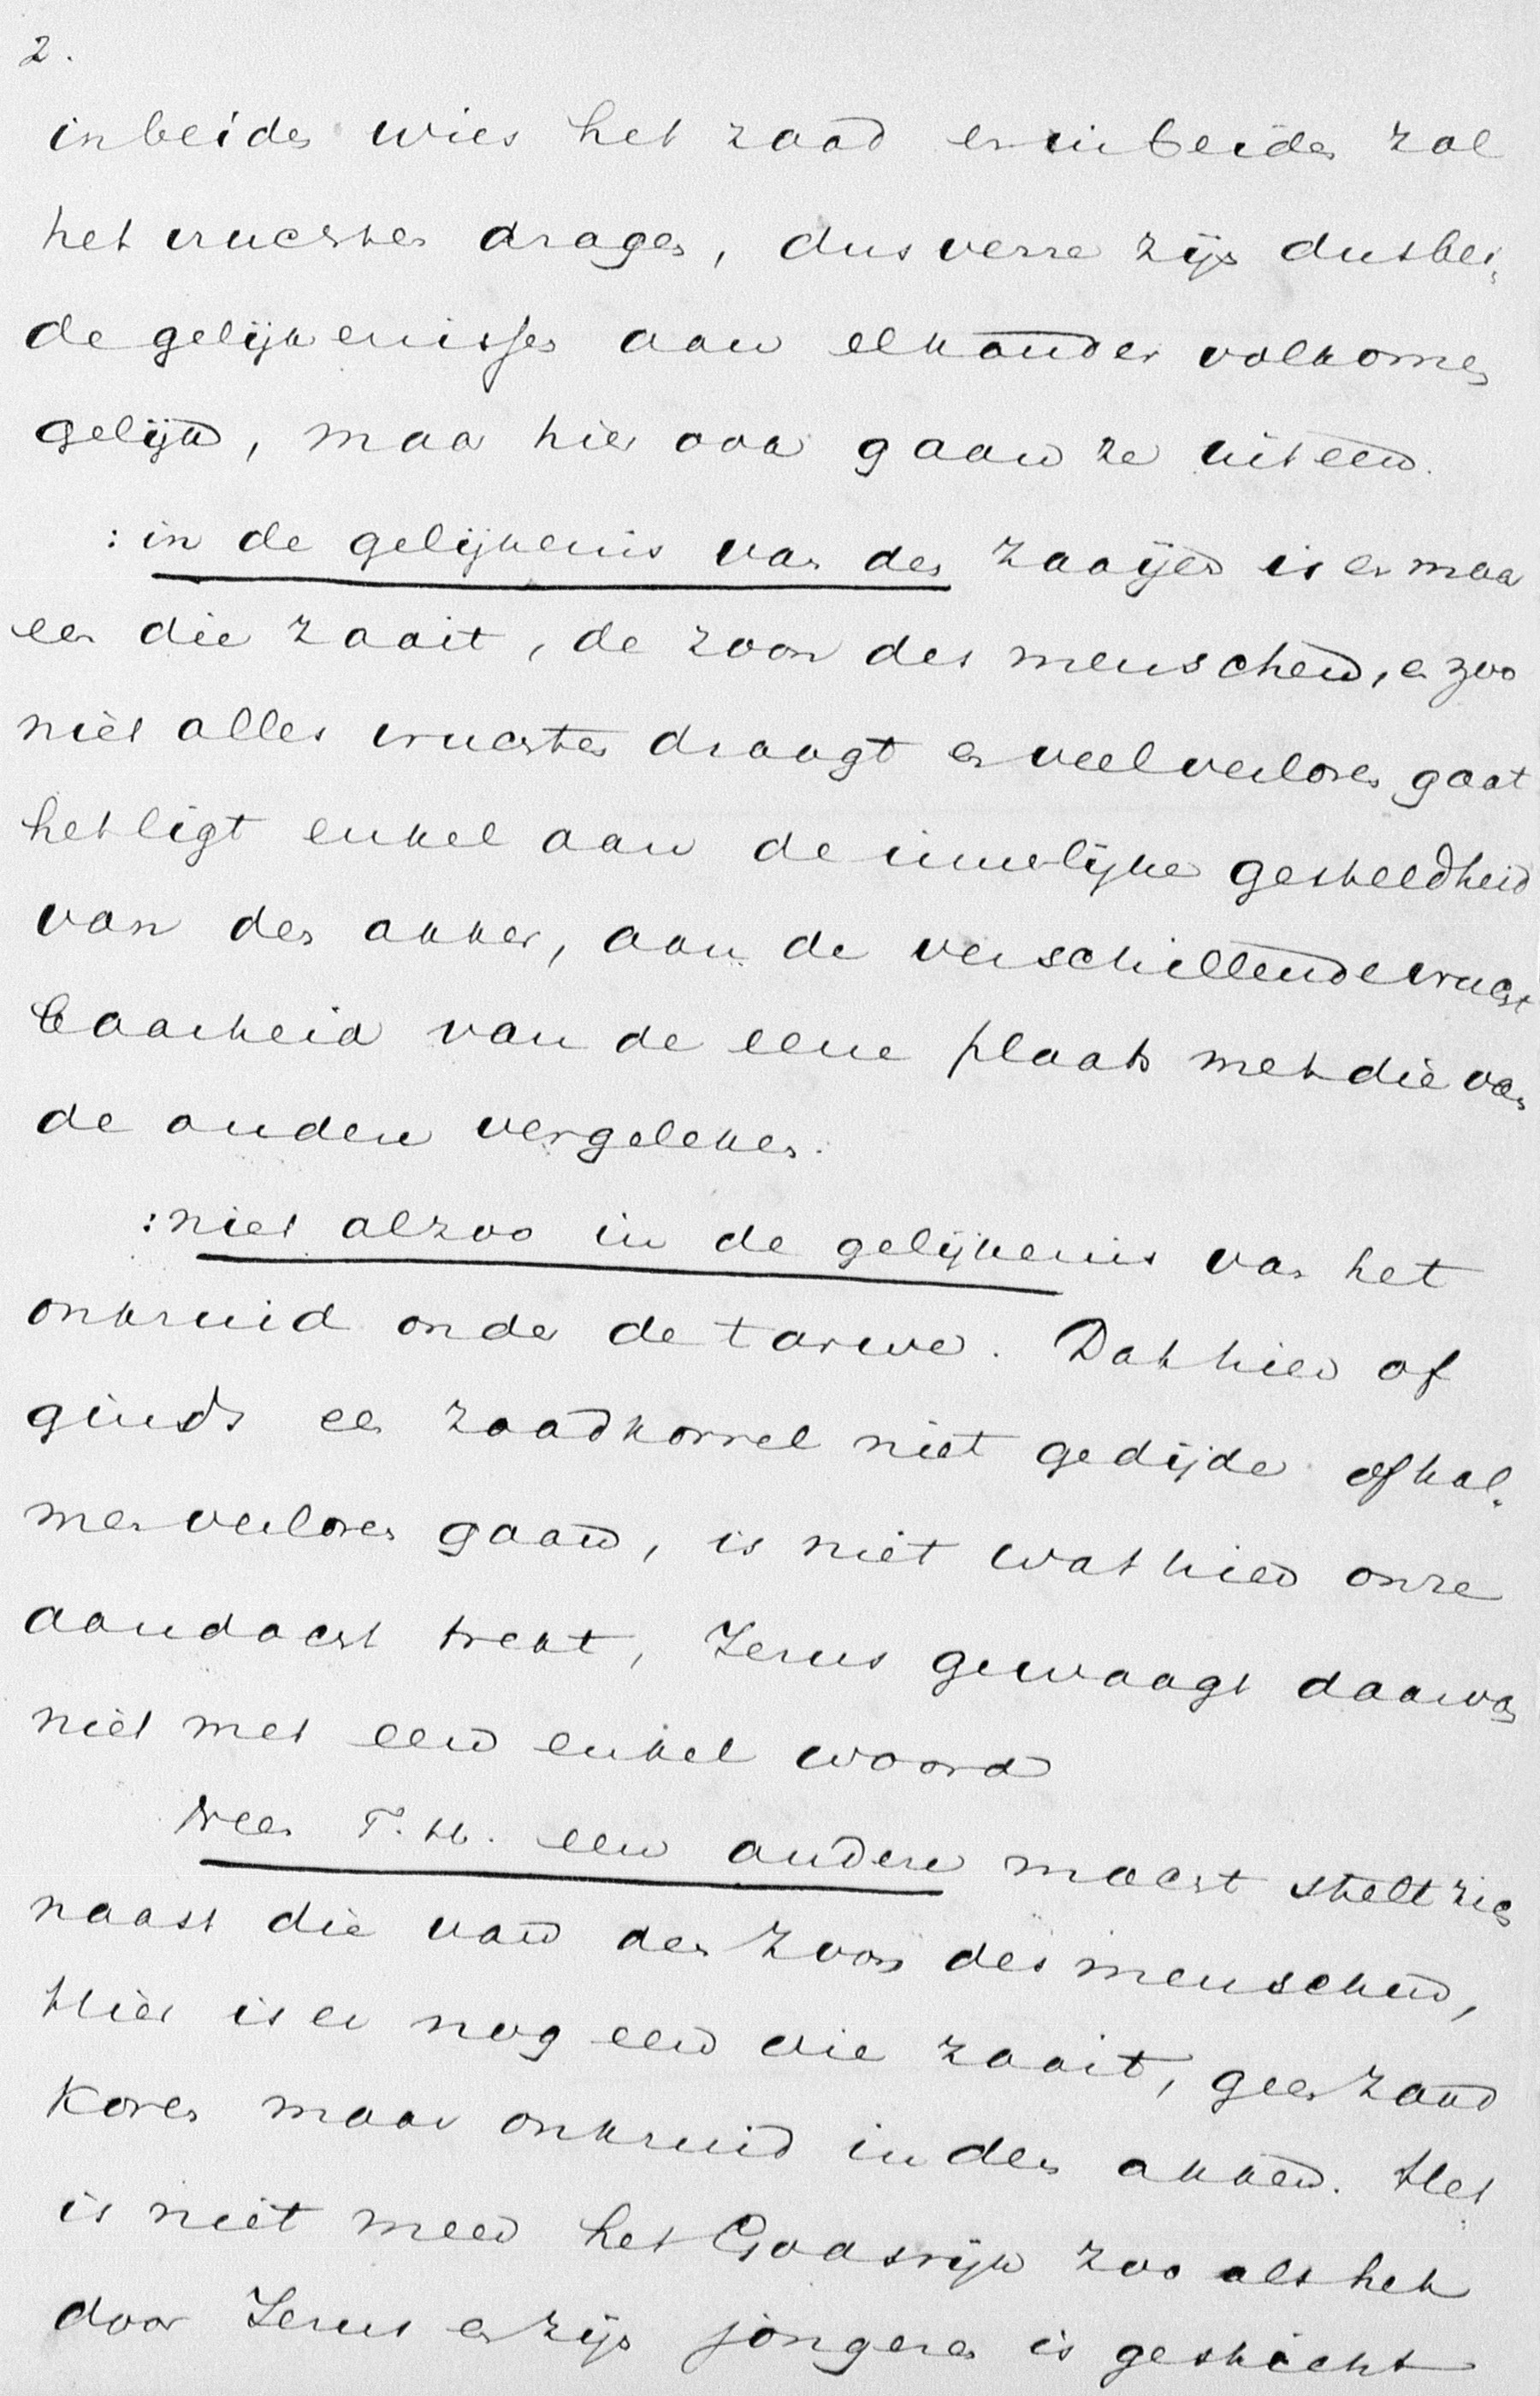 2.
in beiden wies het zaad en in beiden zal
het vruchten dragen, dus verre zijn dus bei„
de gelijkenissen aan elkander volkomen
gelijk, maar hier ook gaan ze uiteen.
: in de gelijkenis van den zaaijer is er maar
een die zaait, de zoon des menschen, en zoo
niet alles vruchten draagt en veel verloren gaat
het ligt enkel aan de innerlijke gesteldheid
van den akker, aan de verschillende vrucht
baarheid van de eene plaats met die van
de andere vergeleken.
: niet alzoo in de gelijkenis van het
onkruid onder de tarwe. Dat hier of
ginds een zaadkorrel niet gedijde of hal„
men verloren gaan, is niet wat hier onze
aandacht trekt, Jezus gewaagt daarvan
niet met een enkel woord
Neen T. H. een andere macht stelt zich
naast die van den Zoon des menschen,
Hier is er nog een die zaait, geen zaad
koren maar onkruid in den akker. Het
is niet meer het Godsrijk zoo als het
door Jezus en zijn jongeren is gesticht